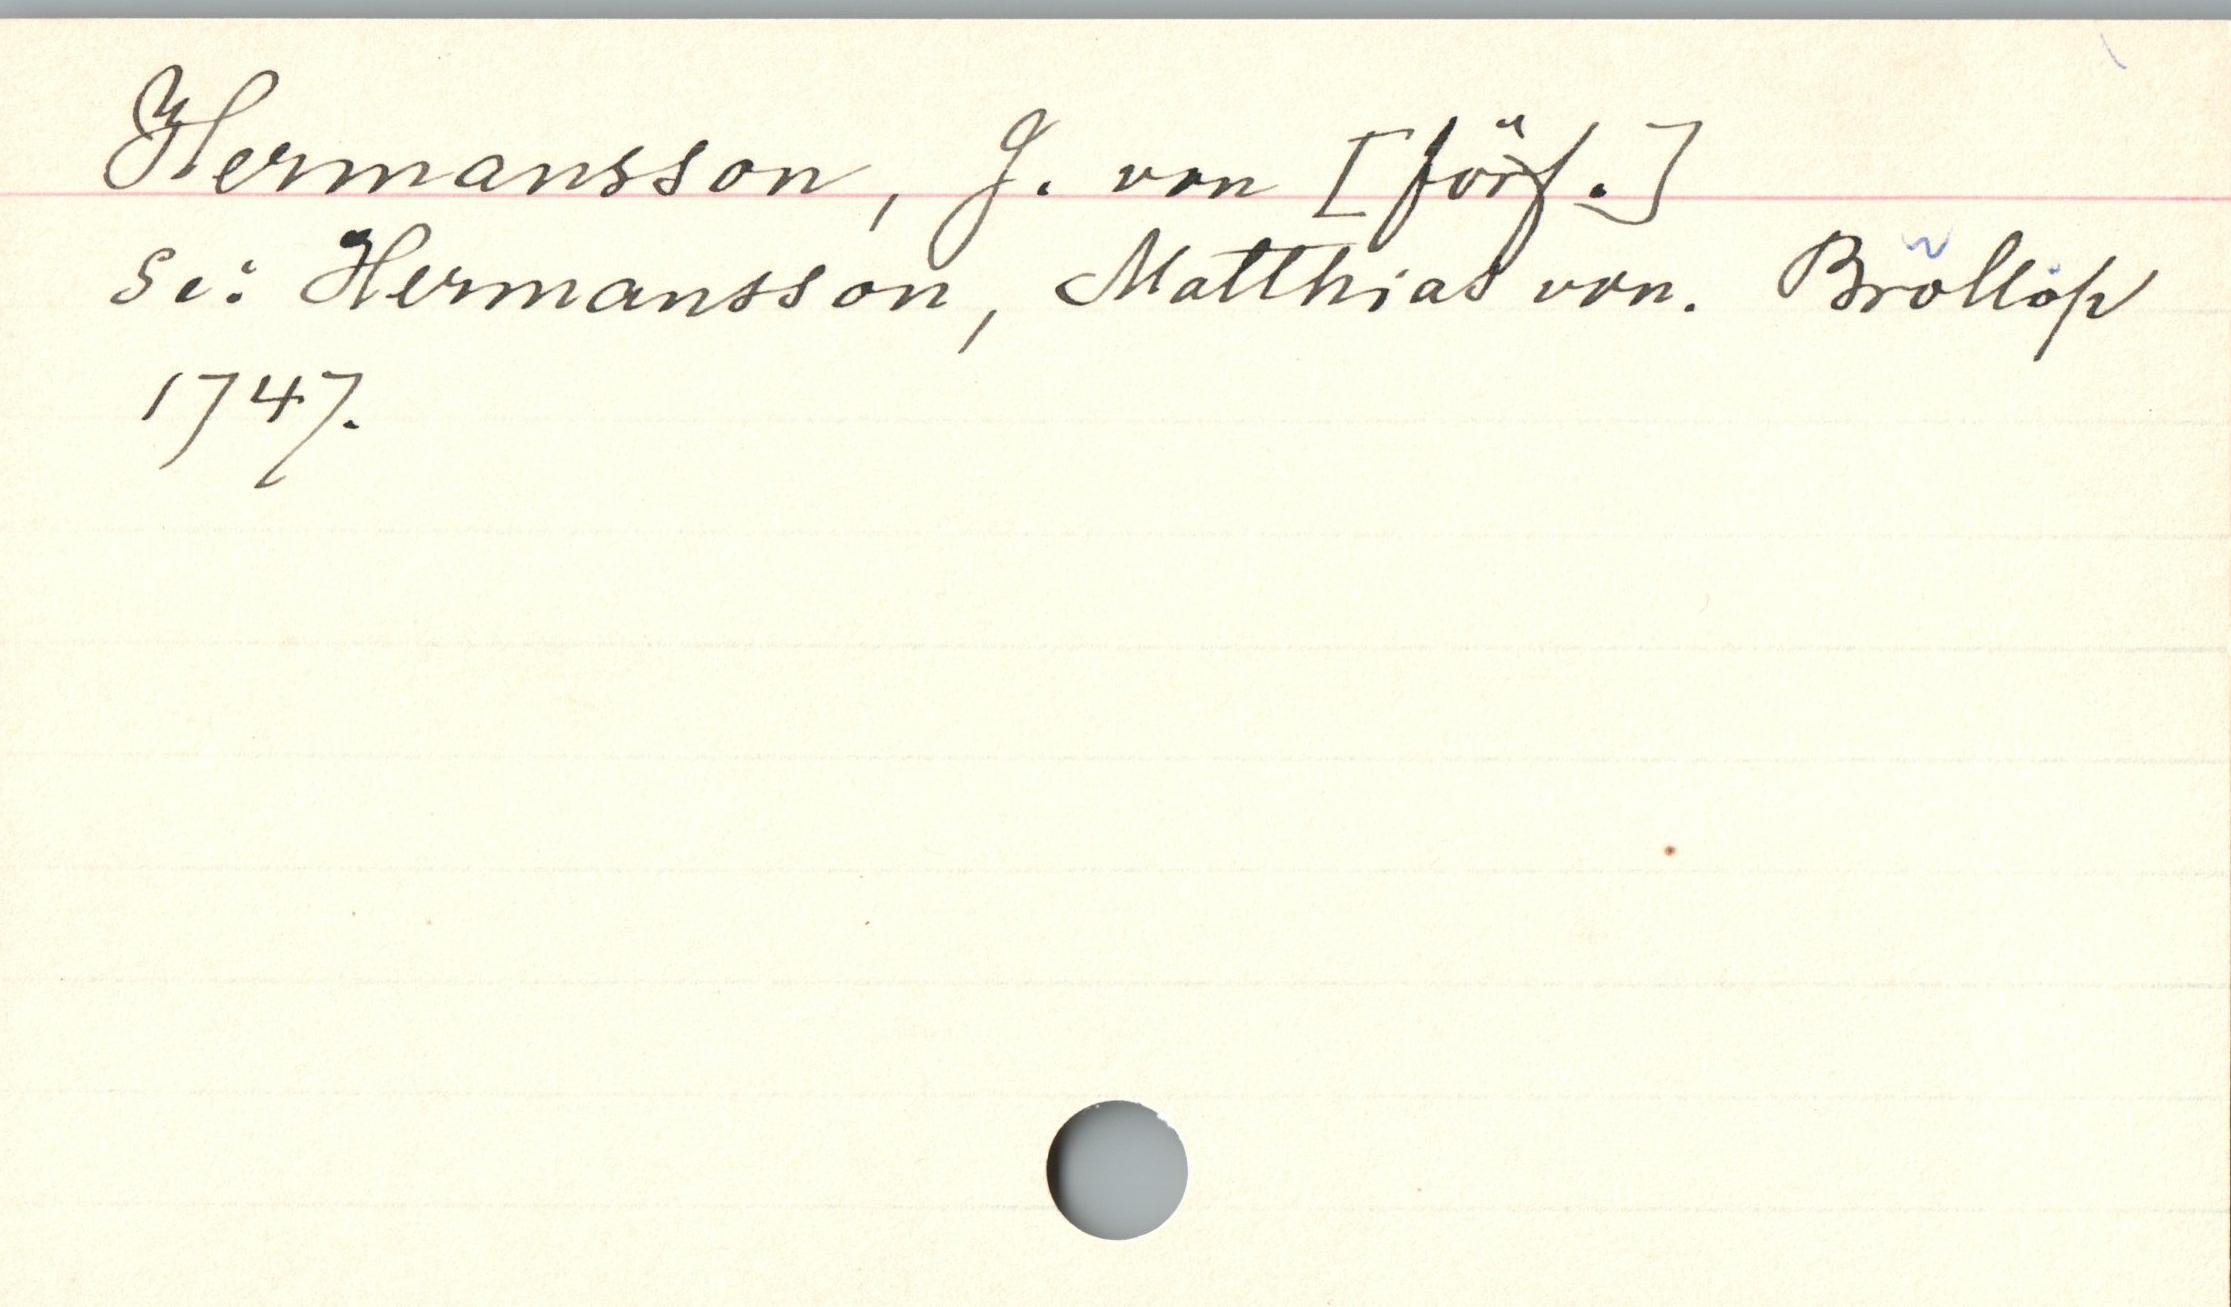 Hermansson, J. von [förf.]
Se: Hermansson, Matthias von. Bröllop
1747.